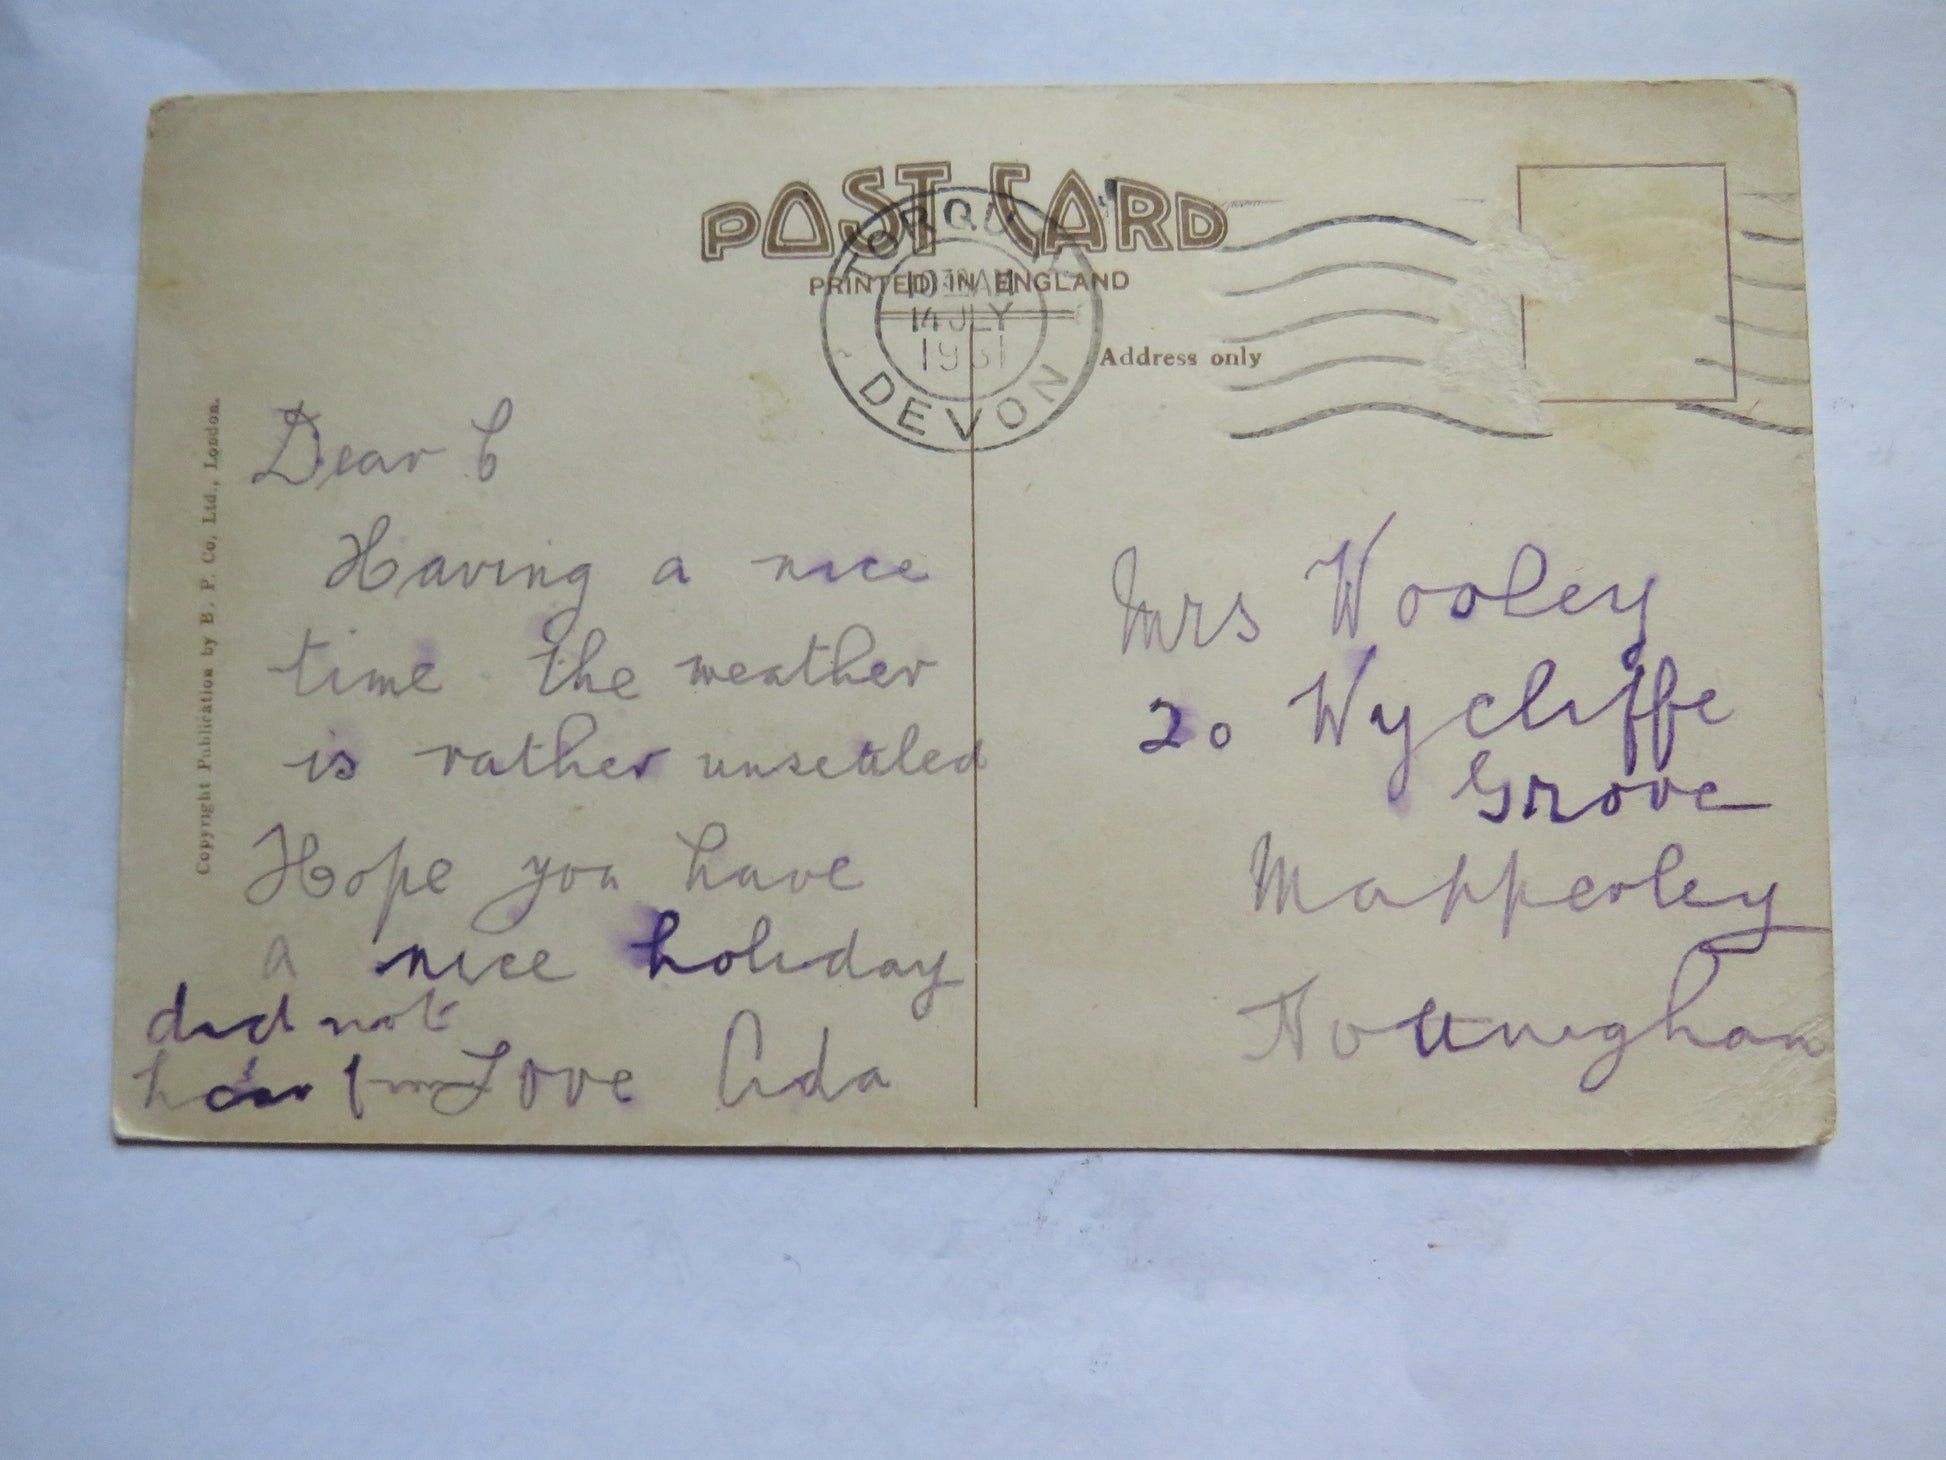 POST CARD
PRINTED IN ENGLAND
TORQUAY
10 AM
14 JLY
1931
DEVON
Address only
Copyright Publication by B. P. Co. Ltd., London.
Dear C
Having a nice
time the weather
is rather unsettled
Hope you have
a nice holiday
did not
hear from
Love Ada
Mrs Wooley
20 Wycliffe
Grove
Mapperley
Nottingham